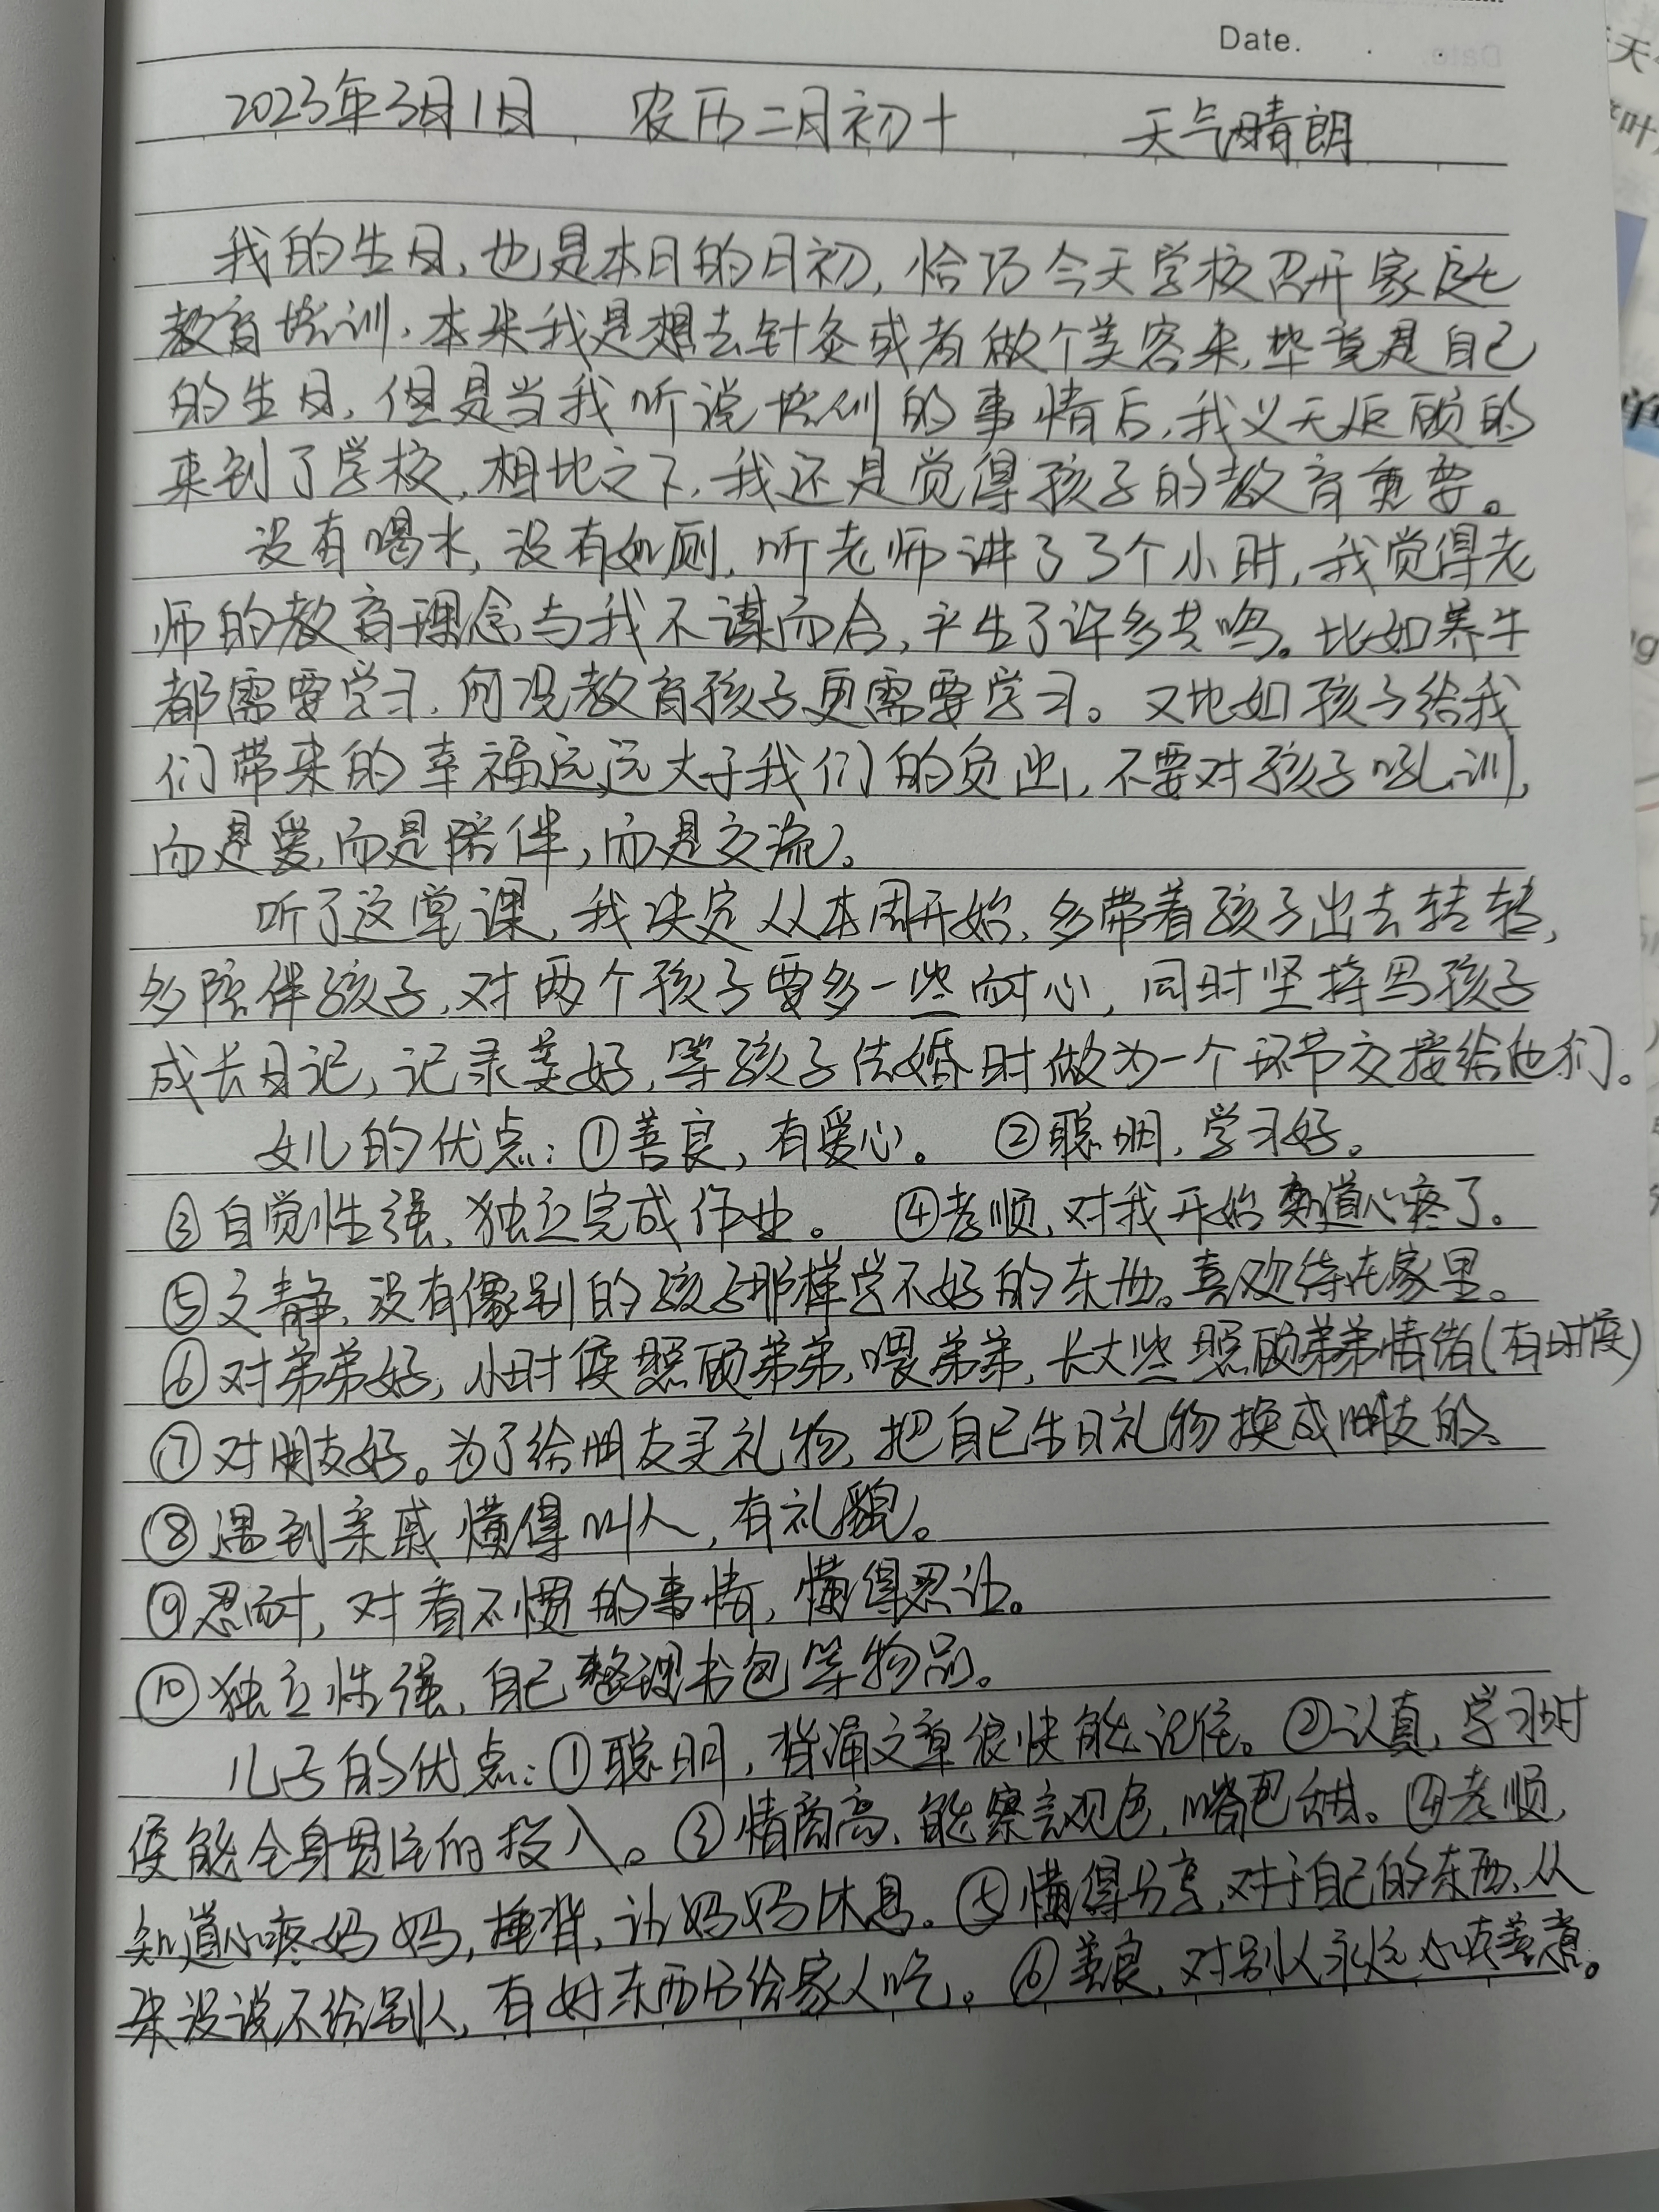 Date.
2023年3月1日 农历二月初十 天气晴朗
我的生日,也是本月的月初,恰巧今天学校召开家庭
教育培训,本来我是想去针灸或者做个美容来,毕竟是自己
的生日,但是当我听说培训的事情后,我义无反顾的
来到了学校,相比之下,我还是觉得孩子的教育重要。
没有喝水,没有如厕,听老师讲了3个小时,我觉得老
师的教育理念与我不谋而合,产生了许多共鸣。比如养牛
都需要学习,何况教育孩子更需要学习。又比如孩子给我
们带来的幸福远远大于我们的负出,不要对孩子吼训,
而是爱,而是陪伴,而是交流。
听了这堂课,我决定从本周开始,多带着孩子出去转转,
多陪伴孩子,对两个孩子要多一些耐心,同时坚持写孩子
成长日记,记录美好,等孩子结婚时做为一个环节交接给他们。
女儿的优点:①善良,有爱心。 ②聪明,学习好。
③自觉性强,独立完成作业。 ④孝顺,对我开始知道心疼了。
⑤文静,没有像别的孩子那样学不好的东西。喜欢待在家里。
⑥对弟弟好,小时候照顾弟弟,喂弟弟,长大些照顾弟弟情绪(有时候)
⑦对朋友好。为了给朋友买礼物,把自己生日礼物换成朋友的。
⑧遇到亲戚懂得叫人,有礼貌。
⑨忍耐,对看不惯的事情,懂得忍让。
⑩独立性强,自己整理书包等物品。
儿子的优点:①聪明,背诵文章很快能记住。②认真,学习时
候能全身贯注的投入。③情商高,能察言观色,嘴巴甜。④孝顺,
知道心疼妈妈,捶背,让妈妈休息。⑤懂得分享,对于自己的东西,从
来没说不给别人,有好东西给家人吃。⑥善良,对别人永远善意。